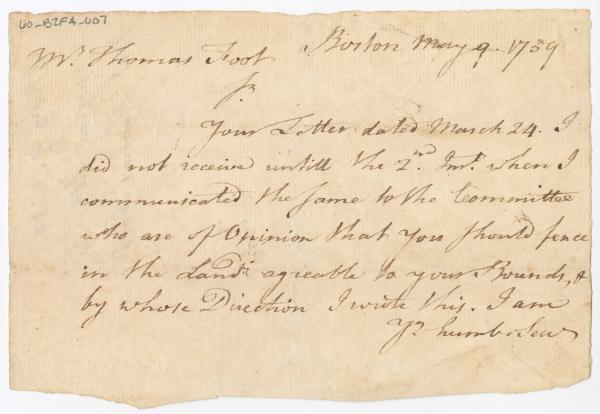 60_B2F4_007
Boston May 9. 1759
Mr. Thomas Foot
Sr
Your Letter dated March 24. I
did not receive untill the 2nd. Inst. when I
communicated the same to the Committee
who are of Opinion that you should fence
in the Land agreable to your Bounds, &
by whose Direction I wrote this. I am
Yr humb. Serv